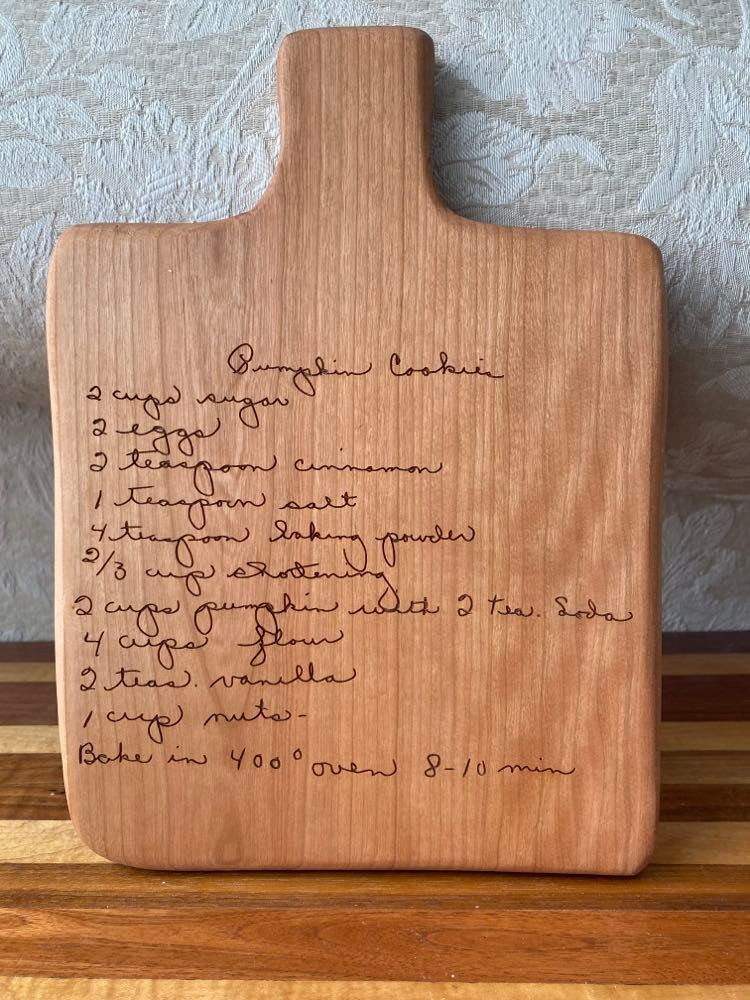 Pumpkin Cookies
2 cups sugar
2 eggs
2 teaspoon cinnamon
1 teaspoon salt
4 teaspoon baking powder
2/3 cup shortening
2 cups pumpkin with 2 tea. Soda
4 cups flour
2 teas. vanilla
1 cup nuts-
Bake in 400° oven 8-10 min